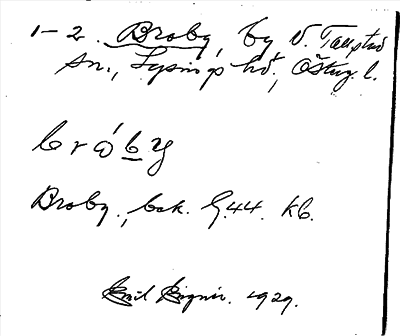 1-2. Broby, by V. Tollstad
sn., Lysings hd., Östg. l.
bro̍by
Broby., bok. G.44. kb.
Emil 1929.